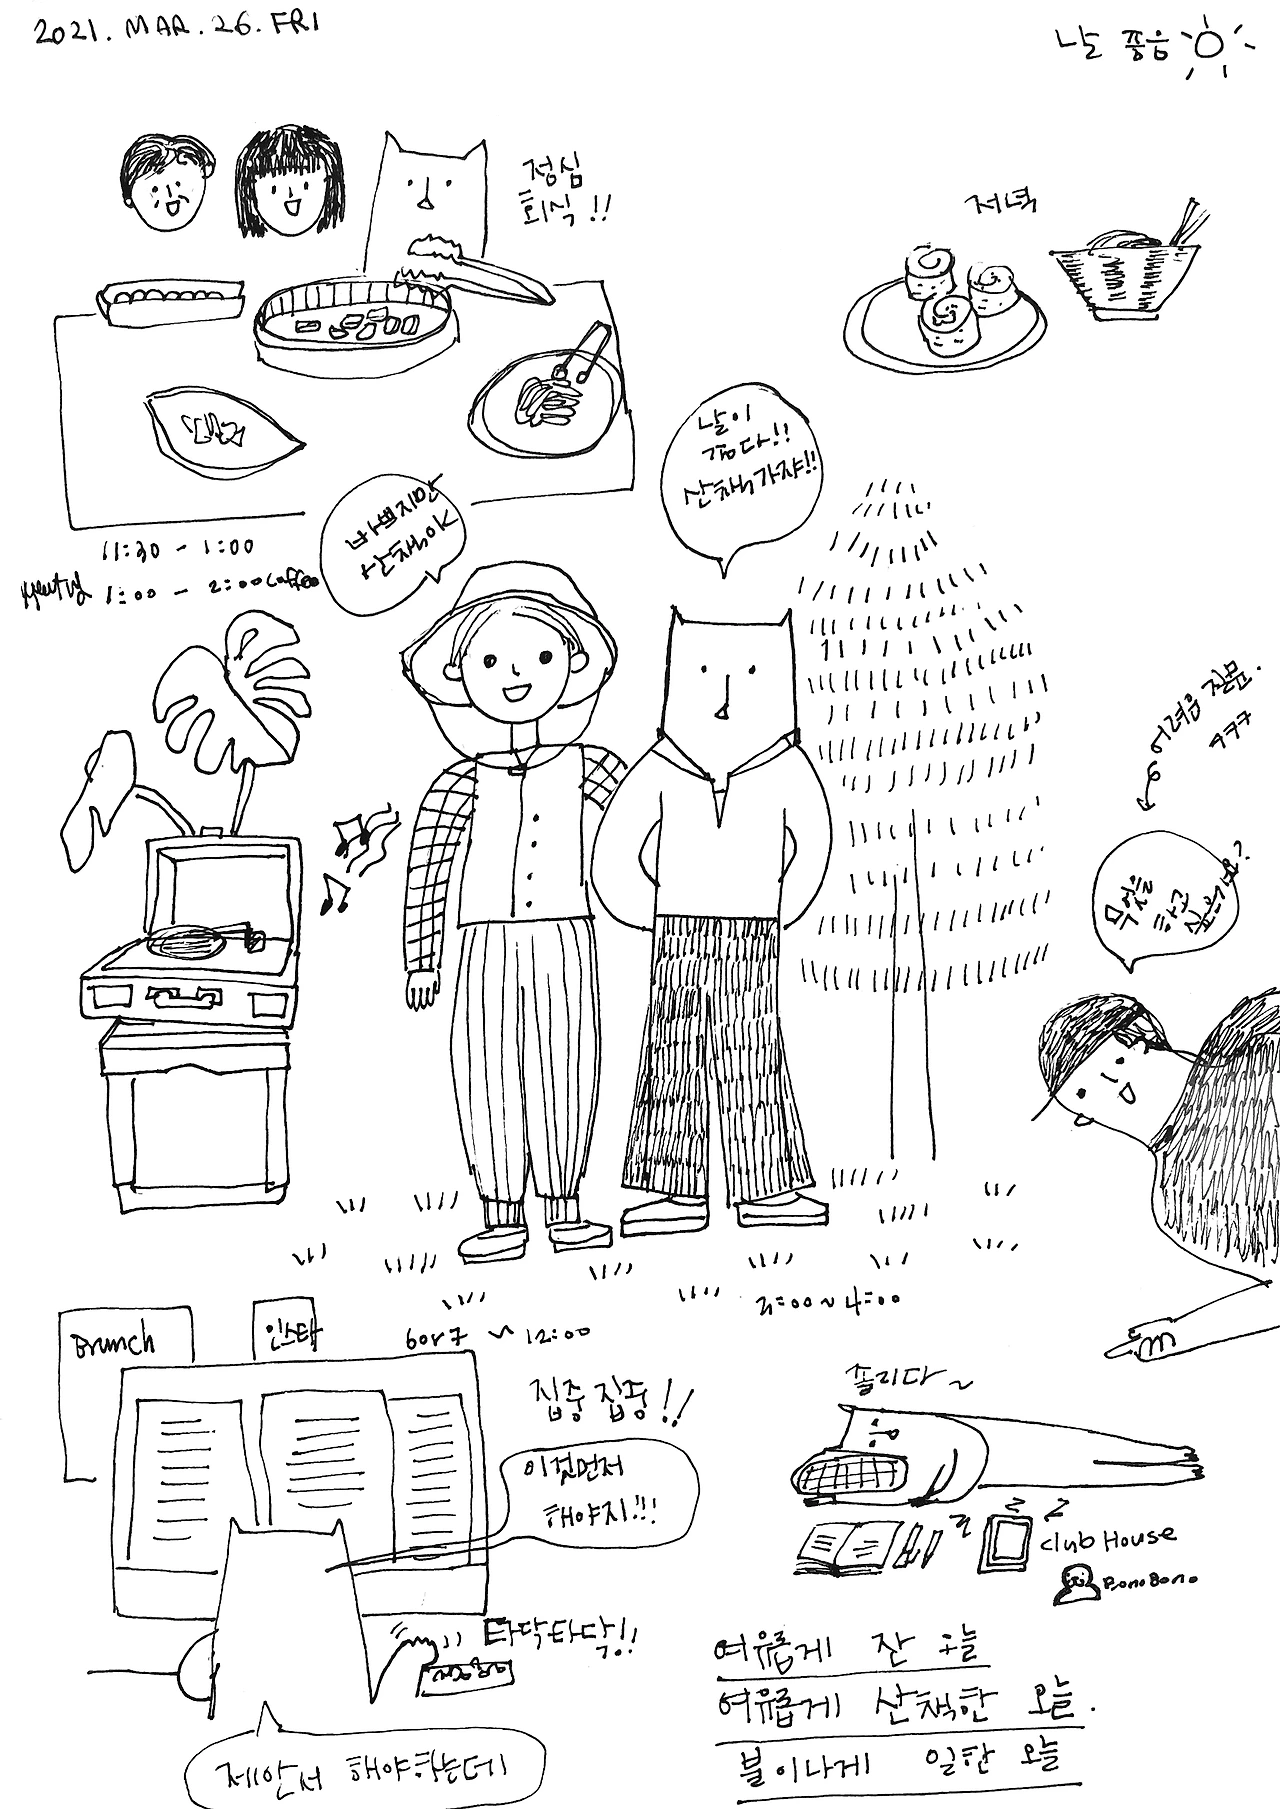 2021. MAR. 26. FRI
날 좋음
점심
회식!!
저녁
날이
좋다!!
산책가쟈!!
바쁘지만
산책이지
11:30 - 1:00
1:00 - 2:00 coffee
어려운 질문.
ㅋㅋㅋ
무엇을
하고
싶은가요?
3:00 ~ 4:00
Brunch
인스타
6 or 7 ~ 12:00
집중 집중!!
이것먼저
해야지!!!
졸리다~
z z z
Club House
BonoBono
타닥타닥!!
제안서 해야하는데
여유롭게 잔 오늘
여유롭게 산책한 오늘.
불이나게 일한 오늘